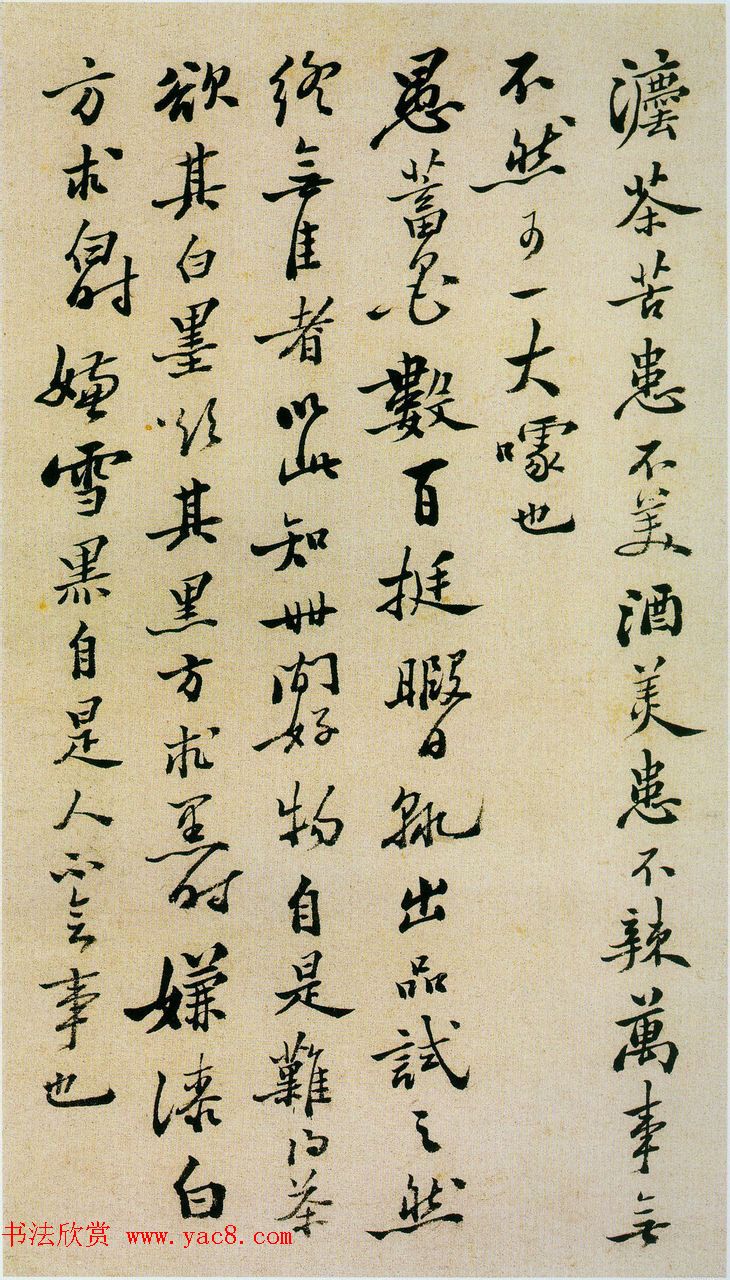 灋茶苦患不美酒美患不辣萬事無
不然可一大噱也
愚蓄墨數百挺暇日輒出品試之然
終無佳者以此知世間好物自是難得茶
欲其白墨欲其黑方求黑時嫌漆白
方求白時嫌雪黑自是人不會事也
书法欣赏 www.yac8.com